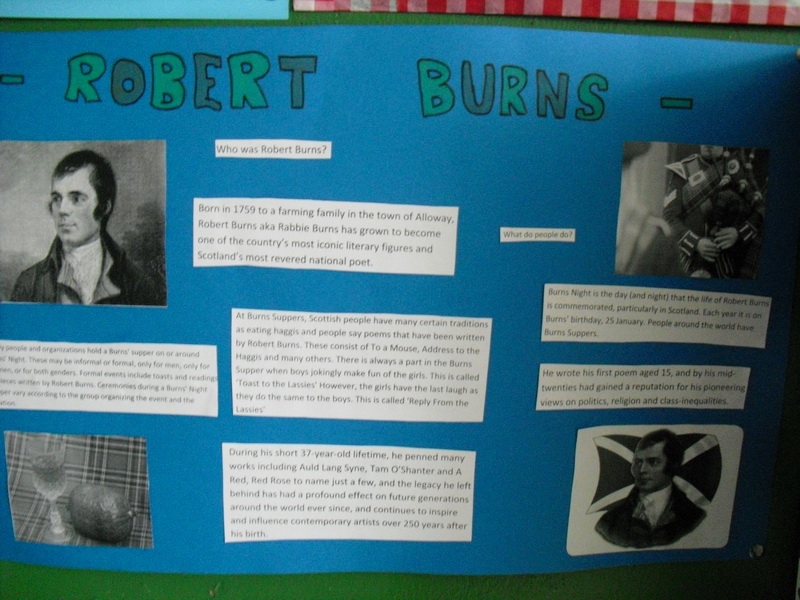 - ROBERT BURNS -
Who was Robert Burns?
Born in 1759 to a farming family in the town of Alloway,
Robert Burns aka Rabbie Burns has grown to become
one of the country's most iconic literary figures and
Scotland's most revered national poet.
What do people do?
Burns Night is the day (and night) that the life of Robert Burns
is commemorated, particularly in Scotland. Each year it is on
Burns' birthday, 25 January. People around the world have
Burns Suppers.
At Burns Suppers, Scottish people have many certain traditions
as eating haggis and people say poems that have been written
by Robert Burns. These consist of To a Mouse, Address to the
Haggis and many others. There is always a part in the Burns
Supper when boys jokingly make fun of the girls. This is called
'Toast to the Lassies' However, the girls have the last laugh as
they do the same to the boys. This is called 'Reply From the
Lassies'
people and organizations hold a Burns' supper on or around
Night. These may be informal or formal, only for men, only for
or for both genders. Formal events include toasts and readings
written by Robert Burns. Ceremonies during a Burns' Night
vary according to the group organizing the event and the
He wrote his first poem aged 15, and by his mid-
twenties had gained a reputation for his pioneering
views on politics, religion and class-inequalities.
During his short 37-year-old lifetime, he penned many
works including Auld Lang Syne, Tam O'Shanter and A
Red, Red Rose to name just a few, and the legacy he left
behind has had a profound effect on future generations
around the world ever since, and continues to inspire
and influence contemporary artists over 250 years after
his birth.